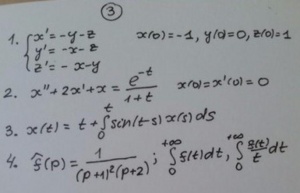 ③
1. { x' = -y - z
y' = -x - z
z' = -x - y
x(0) = -1, y(0) = 0, z(0) = 1
2. x'' + 2x' + x = e^{-t} / (1 + t)   x(0) = x'(0) = 0
3. x(t) = t + ∫_0^t sin(t-s) x(s) ds
4. f̂(p) = 1 / ((p+1)^2 (p+2)) ; ∫_0^{+∞} f(t) dt, ∫_0^{+∞} f(t)/t dt